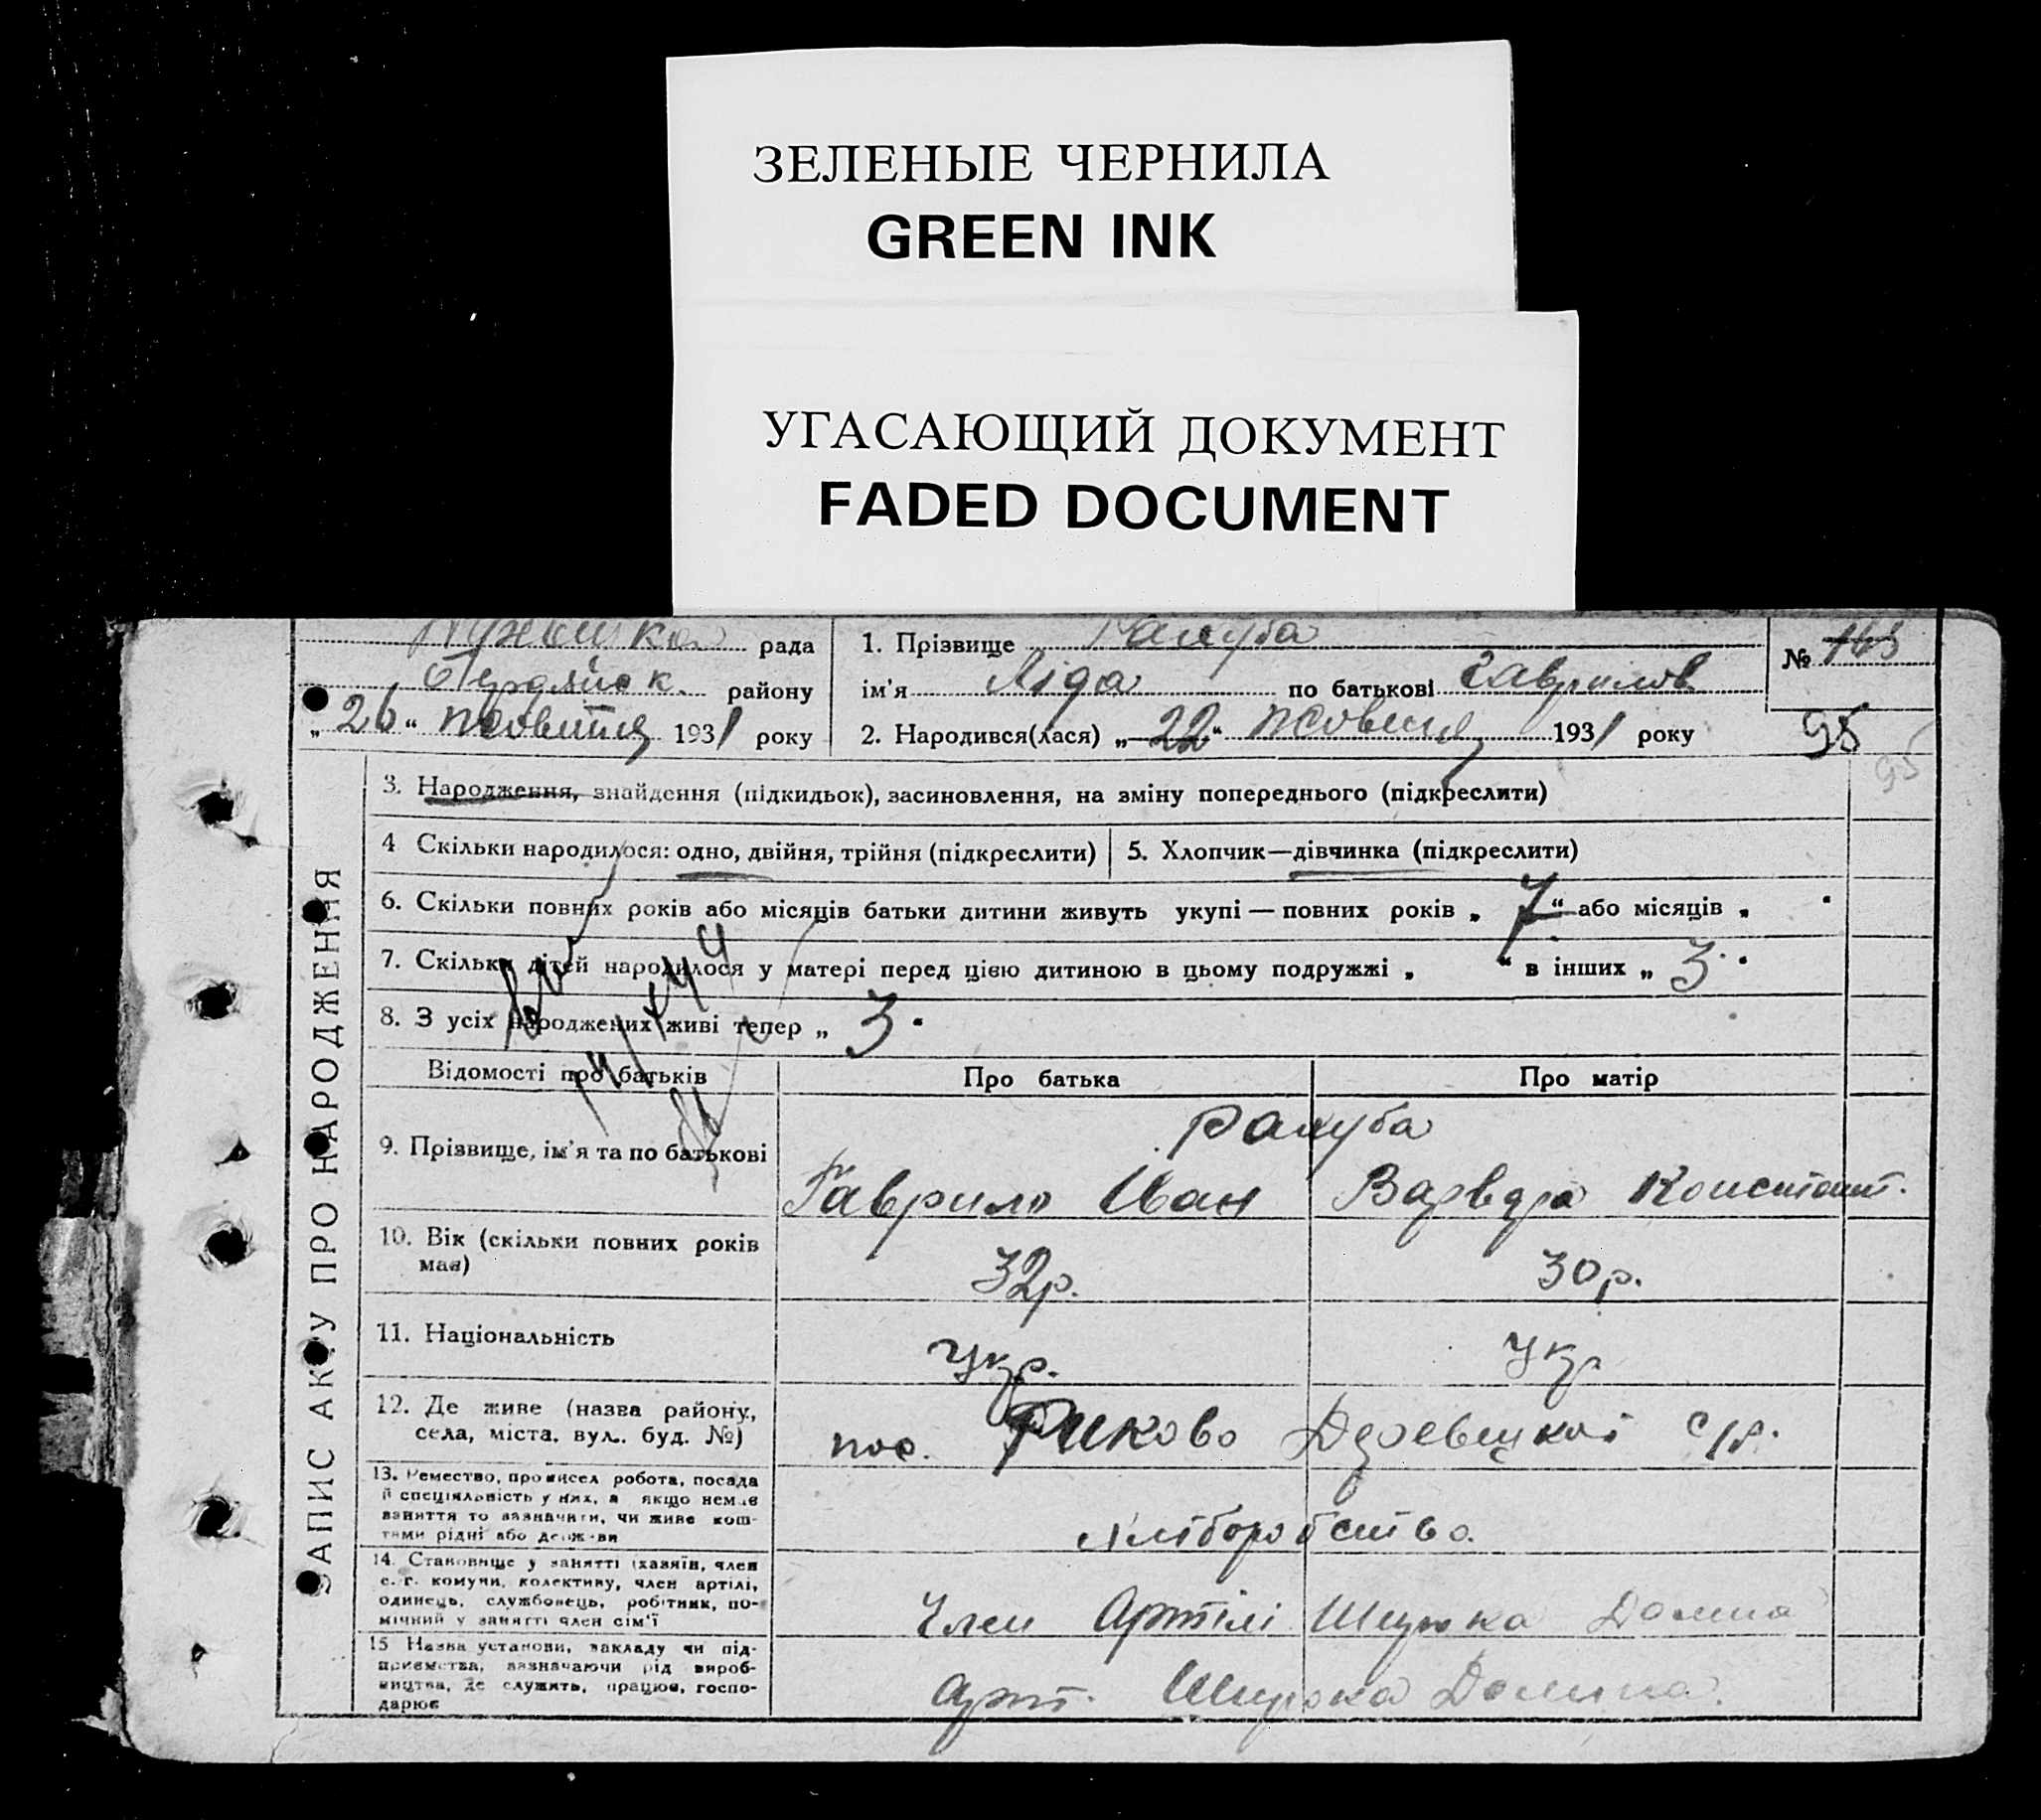 ЗЕЛЕНЫЕ ЧЕРНИЛА
GREEN INK
УГАСАЮЩИЙ ДОКУМЕНТ
FADED DOCUMENT
рада
району
„ 26 “ жовтня 1931 року
1. Прізвище Галуба
ім'я Ліда по батькові Гаврилов
2. Народився(лася) „ 22 “ жовтня 1931 року
№ 165
95
95
ЗАПИС АКТУ ПРО НАРОДЖЕННЯ
3. Народження, знайдення (підкидьок), засиновлення, на зміну попереднього (підкреслити)
4 Скільки народилося: одно, двійня, трійня (підкреслити)
5. Хлопчик—дівчинка (підкреслити)
6. Скільки повних років або місяців батьки дитини живуть укупі — повних років „ 7 “ або місяців „
7. Скільки дітей народилося у матері перед цією дитиною в цьому подружжі „ “ в інших „ 3
8. З усіх народжених живі тепер „ 3
Відомості про батьків
Про батька
Про матір
9. Прізвище, ім'я та по батькові
Галуба
Гаврило Иван
Варвара Констант.
10. Вік (скільки повних років має)
32р.
30р.
11. Національність
Укр.
Укр
12. Де живе (назва району, села, міста, вул. буд. №)
пос. Риково с/р.
13. Ремество, промисел робота, посада
й спеціяльність у них, а якщо немає
заняття то зазначити, чи живе кош-
тами рідні або держави
Хліборобство.
14. Становище у занятті (хазяїн, член
с.-г. комуни, колективу, член артілі,
одинець, службовець, робітник, по-
мічний у занятті член сім'ї
Член Артілі Широка Долина
15 Назва установи, закладу чи під-
приємства, зазначаючи рід вироб-
ництва, де служить, працює, госпо-
дарює
Арт. Широка Долина.